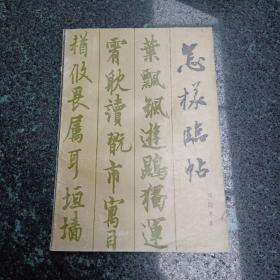 怎樣臨帖
葉飄飖遊鵾獨運
霄耽讀翫市寓目
猶攸畏屬耳垣墻